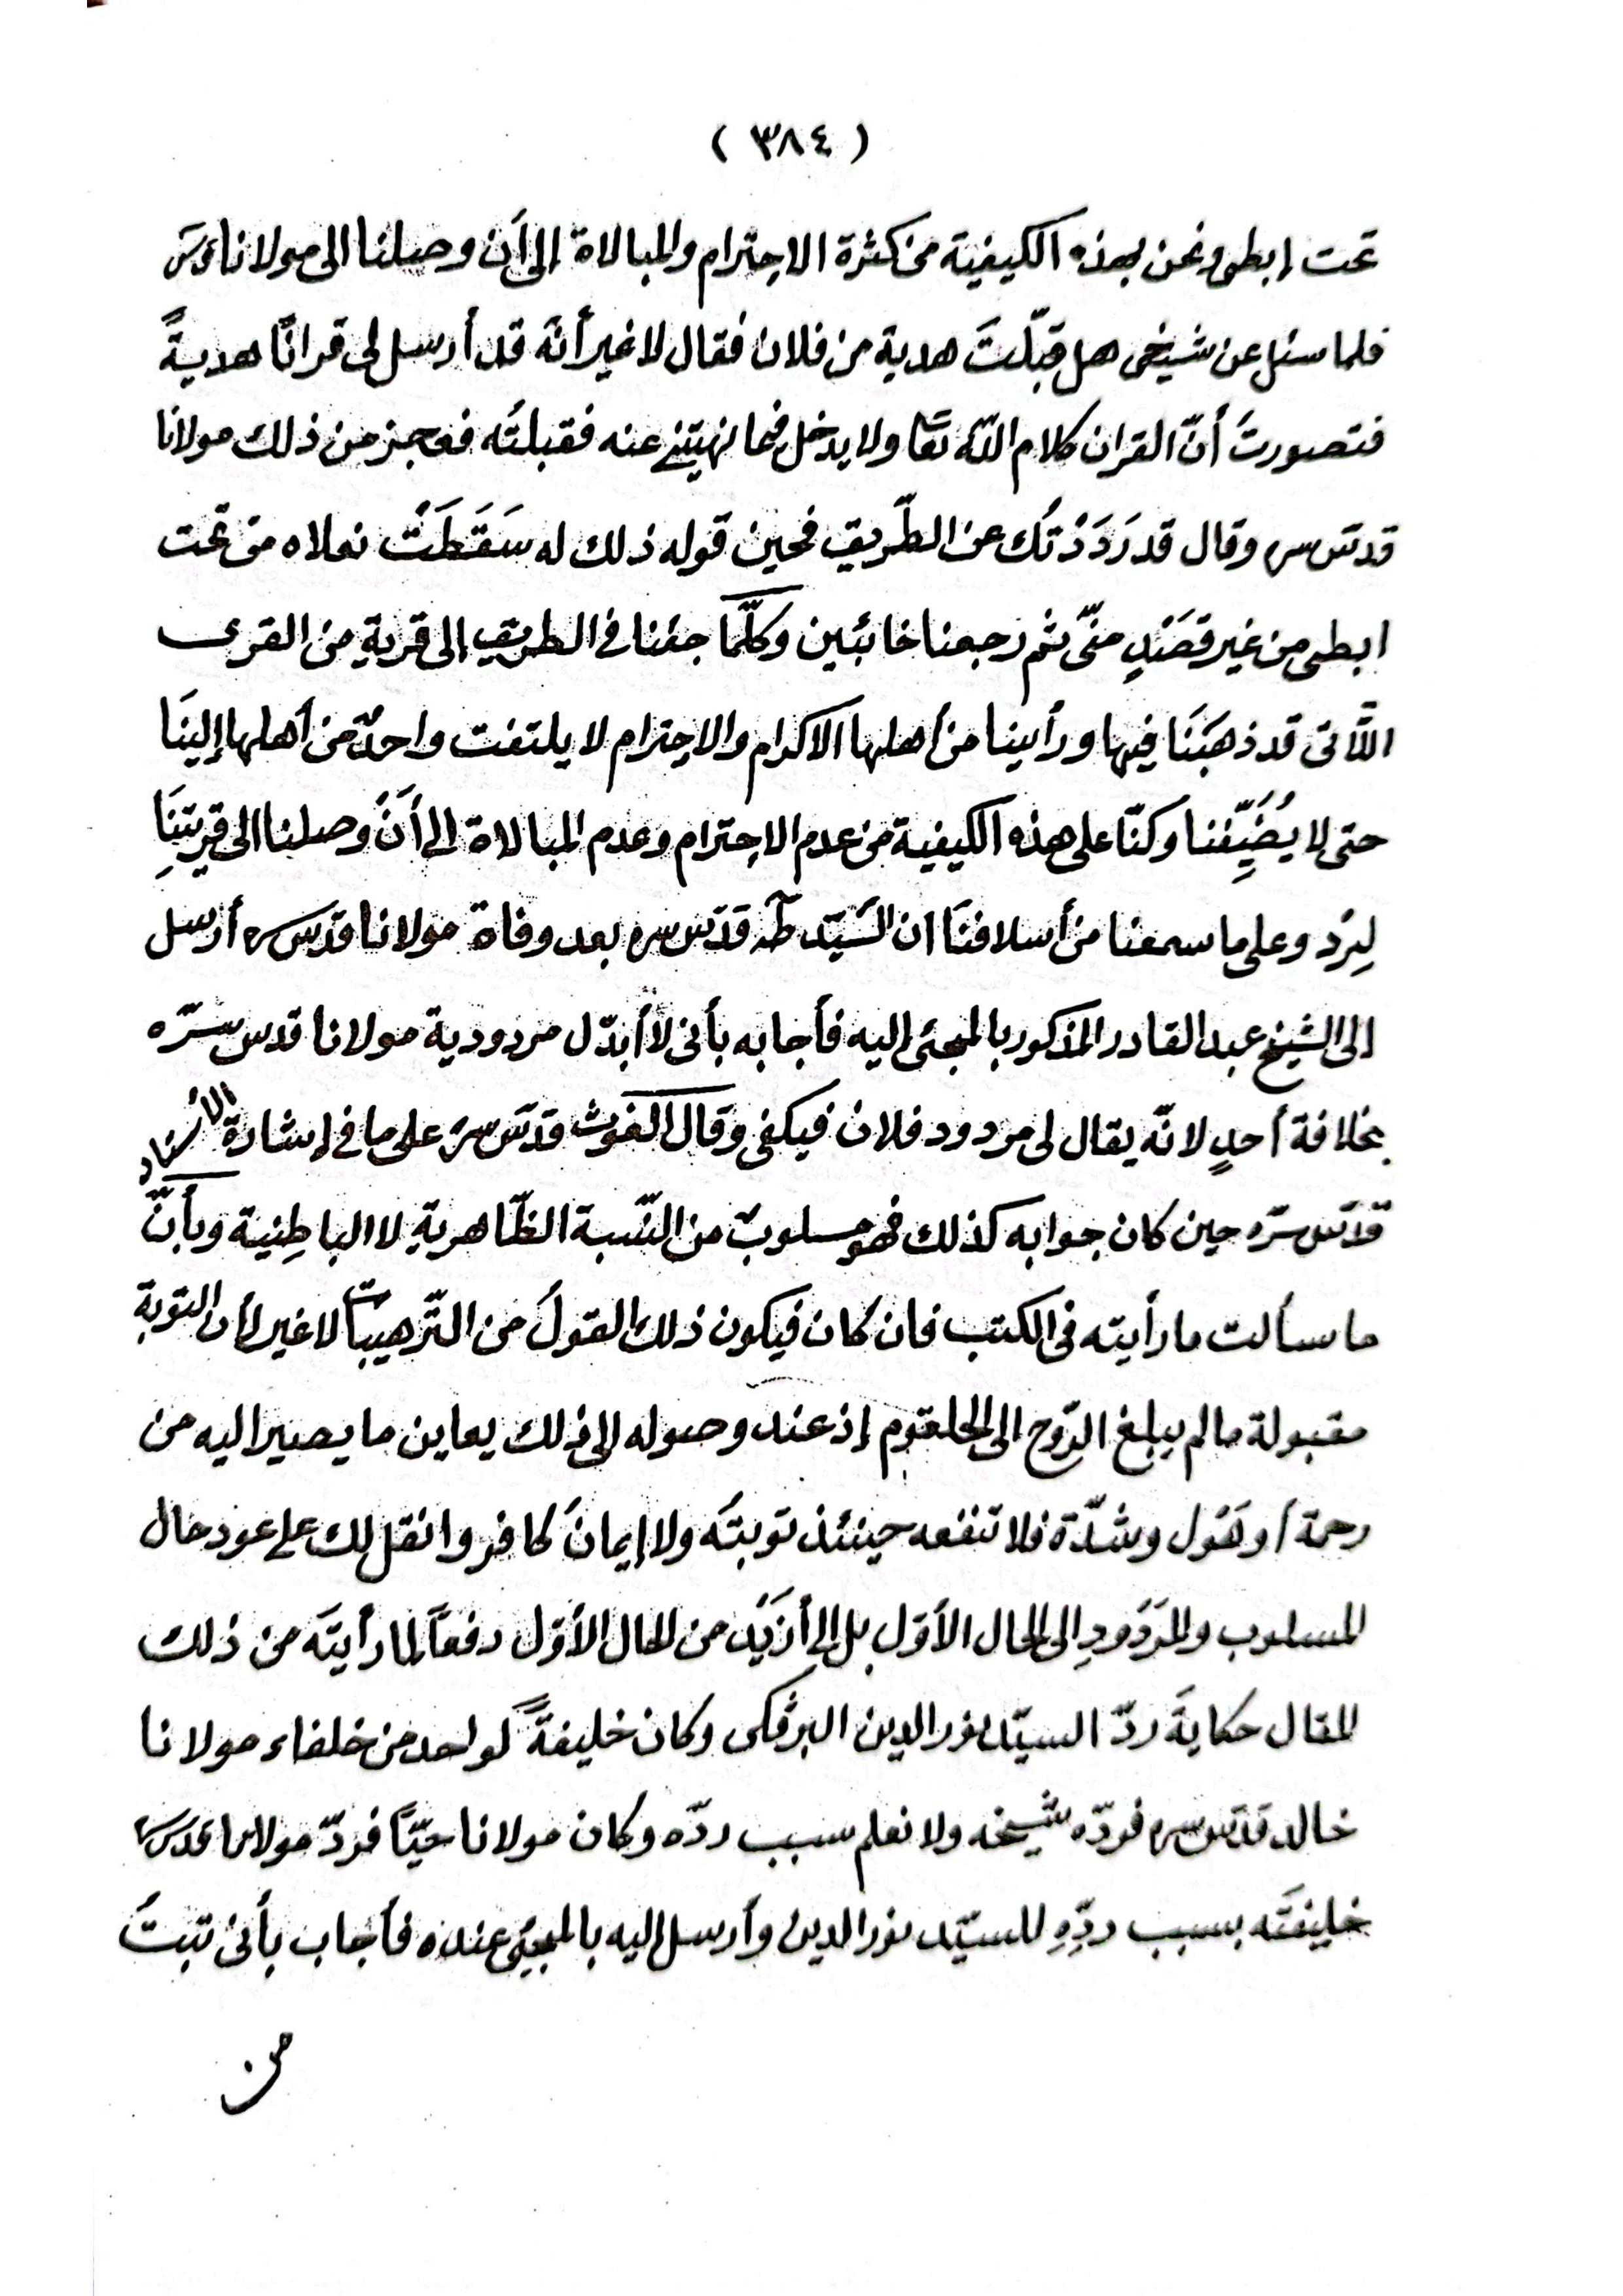 ( ٣٨٤ )
تحت إبطى ونحن بهذه الكيفية من كثرة الاحترام والمبالاة إلى أن وصلنا الى مولانا قدس
فلما سئل عن شيخى هل قبّلتَ هدية من فلان فقال لا غير أنّه قد أرسل لى قرانًا هديةً
فتصورتُ أنّ القران كلام اللّه تعا ولا يدخل فيما نهيتنى عنه فقبلتُه فعجز من ذلك مولانا
قدّس سره وقال قد رَدَدْتُك عن الطّريق فحين قوله ذلك له سَقَطَتْ نعلاه من تحت
ابطى من غير قصَندٍ منّى ثم رجعنا خائبين وكلّما جئنا فى الطريق الى قريةٍ من القرى
اللّاتى قد ذهبَنَا فيها ورأينا من أهلها الاكرام والاحترام لا يلتفت واحدٌ من أهلها إلينَا
حتى لا يُضَيِّفنا وكنّا على هذه الكيفية من عدم الاحترام وعدم المبالاة إلى أنْ وصلنا الى قريتِنَا
لِبرُد وعلى ما سمعنا من أسلافنَا ان السَّيّد طٰه قدّس سره بعد وفاة مولانا قدّس سره أرسل
الى الشيخ عبد القادر المذكور بالمجئ اليه فأجابه بأنى لا أبدّل مردودية مولانا قدس سّره
بخلافة أحدٍ لانّه يقال لى مردود فلان فيكفى وقال الغوث قدّس سره على ما فى إشارة الأستاد
قدّس سرّه حين كان جوابه كذلك فهو مسلوبٌ من النّسبة الظّاهريةِ لا الباطِنية وبأنّ
ما سألت ما رأيته فى الكتب فان كان فيكون ذلك القولُ من التّرهيبات لا غير لأن التوبة
مقبولة ما لم يبلغ الرّوح الى الحلقوم إذ عند وصوله إلى ذلك يعاين ما يصير اليه من
رحمة أو هَوْل وشدّة فلا تنفعه حينئذ توبتُه ولا إيمانُ كافر وانقل لك على عود حال
المسلوب والمرَدُودِ الى الحال الأوّل بل إلى أزيَد من الحال الأوّل دفعًا لما رأيتَه من ذلك
المقال حكايةَ ردّ السيّد نور الدين البرفكى وكان خليفةً لواحد من خلفاء مولانا
خالد قدّس سره فردّه شيخه ولا نعلم سبب ردّه وكان مولانا حيّاً فردّ مولانا قدس سره
خليفتَه بسبب ردِّهِ للسيّد نور الدين وأرسل اليه بالمجئ عنده فأجاب بأنى تبتُ
من